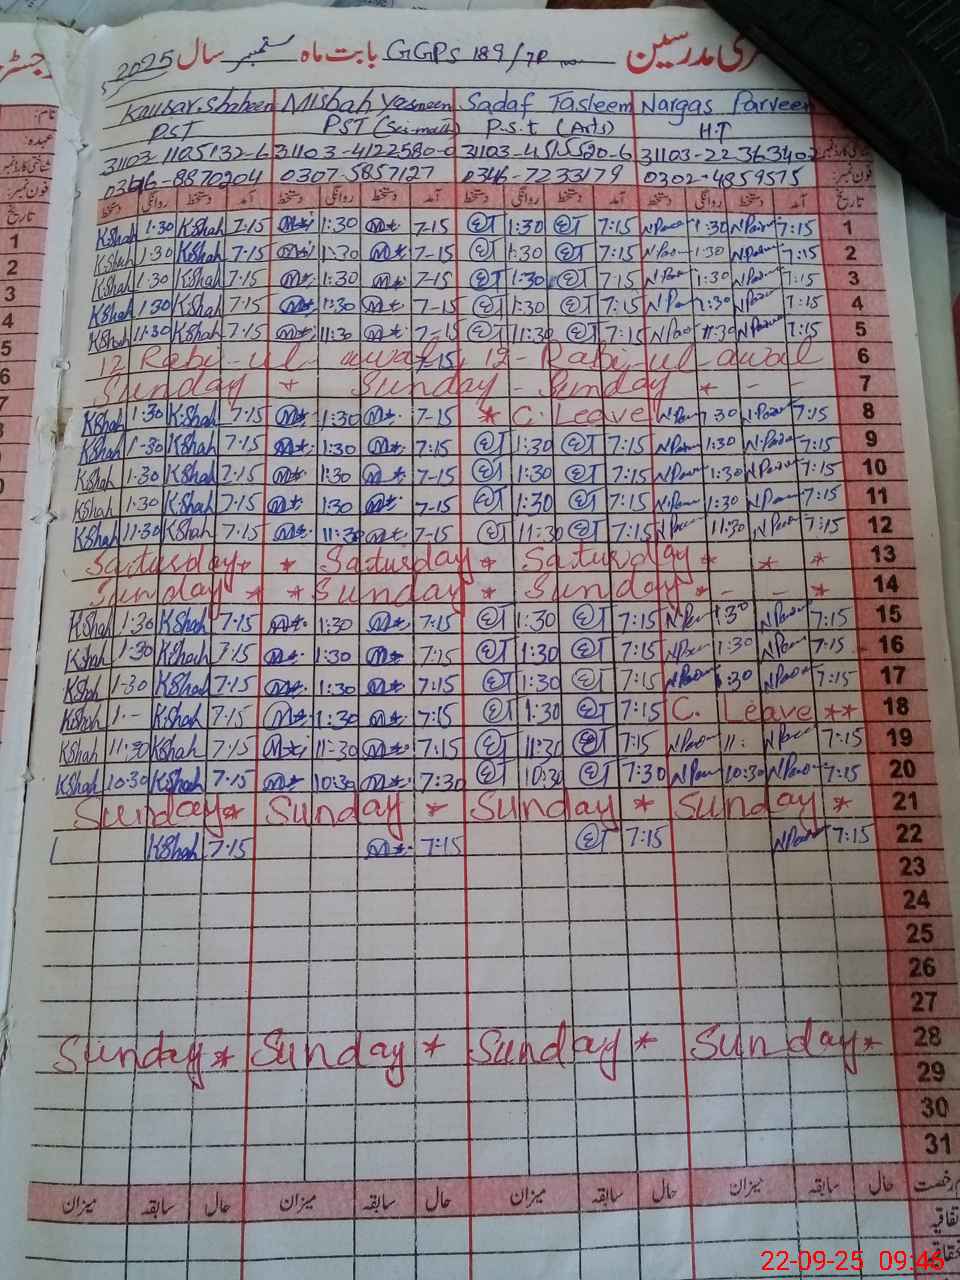 مدرسین بابت ماہ ستمبر سال 2025 GGPS 189/7R
Kausar Shaheen Misbah Yasmeen Sadaf Tasleem Nargas Parveen
PST PST (Sci-math) P.S.t (Arts) H.T
31103-1105132-6 31103-4122580-0 31103-4515520-6
0346-8870204 0307-5857127 0346-7233179 0302-4859575
دستخط روانگی دستخط آمد دستخط روانگی دستخط آمد دستخط روانگی دستخط آمد دستخط روانگی دستخط آمد تاریخ
K.Shah 1:30 K.Shah 7:15 1:30 7-15 1:30 7:15 1:30 7:15 1
K.Shah 1:30 K.Shah 7:15 1:30 7-15 1:30 7:15 1:30 7:15 2
K.Shah 1:30 K.Shah 7:15 1:30 7-15 1:30 7:15 1:30 7:15 3
K.Shah 1:30 K.Shah 7:15 1:30 7-15 1:30 7:15 1:30 7:15 4
K.Shah 11:30 K.Shah 7:15 11:30 7-15 11:30 7:15 11:30 7:15 5
12 Rabi-ul-awal 12-Rabi-ul-awal 6
Sunday * Sunday - Sunday * - - 7
K.Shah 1:30 K.Shah 7:15 1:30 7-15 * C. Leave 1:30 7:15 8
K.Shah 1-30 K.Shah 7:15 1:30 7:15 1:30 7:15 1:30 7:15 9
K.Shah 1:30 K.Shah 7:15 1:30 7-15 1:30 7:15 1:30 7:15 10
K.Shah 1:30 K.Shah 7:15 1:30 7-15 1:30 7:15 1:30 7:15 11
K.Shah 11:30 K.Shah 7:15 11:30 7-15 11:30 7:15 11:30 7:15 12
Saturday * * Saturday * Saturday * * * 13
Sunday * * Sunday * Sunday * - - * 14
K.Shah 1:30 K.Shah 7:15 1:30 7:15 1:30 7:15 1:30 7:15 15
K.Shah 1:30 K.Shah 7:15 1:30 7:15 1:30 7:15 1:30 7:15 16
K.Shah 1-30 K.Shah 7:15 1:30 7:15 1:30 7:15 1:30 7:15 17
K.Shah 1.- K.Shah 7:15 1:30 7:15 1:30 7:15 C. Leave ** 18
K.Shah 11:30 K.Shah 7:15 11:30 7:15 11:30 7:15 11: 7:15 19
K.Shah 10:30 K.Shah 7:15 10:30 7:30 10:30 7:30 10:30 7:15 20
Sunday * Sunday * Sunday * Sunday * 21
K.Shah 7:15 7:15 7:15 7:15 22
23
24
25
26
27
Sunday * Sunday * Sunday * Sunday * 28
29
30
31
میزان سابقہ حال میزان سابقہ حال میزان سابقہ حال میزان سابقہ حال رخصت
22-09-25 09:46